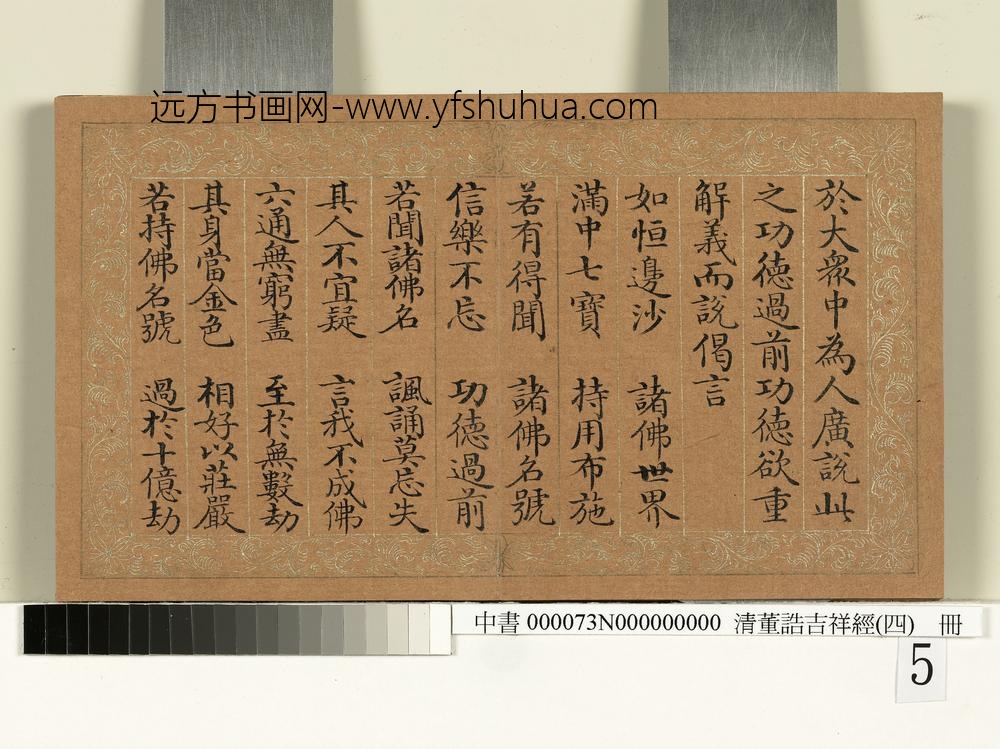 远方书画网-www.yfshuhua.com
於大衆中為人廣說此
之功德過前功德欲重
解義而說偈言
如恒邊沙　諸佛世界
滿中七寶　持用布施
若有得聞　諸佛名號
信樂不忘　功德過前
若聞諸佛名　諷誦莫忘失
其人不宜疑　言我不成佛
六通無窮盡　至於無數劫
其身當金色　相好以莊嚴
若持佛名號　過於十億劫
中書 000073N000000000 清董誥吉祥經(四) 冊
5